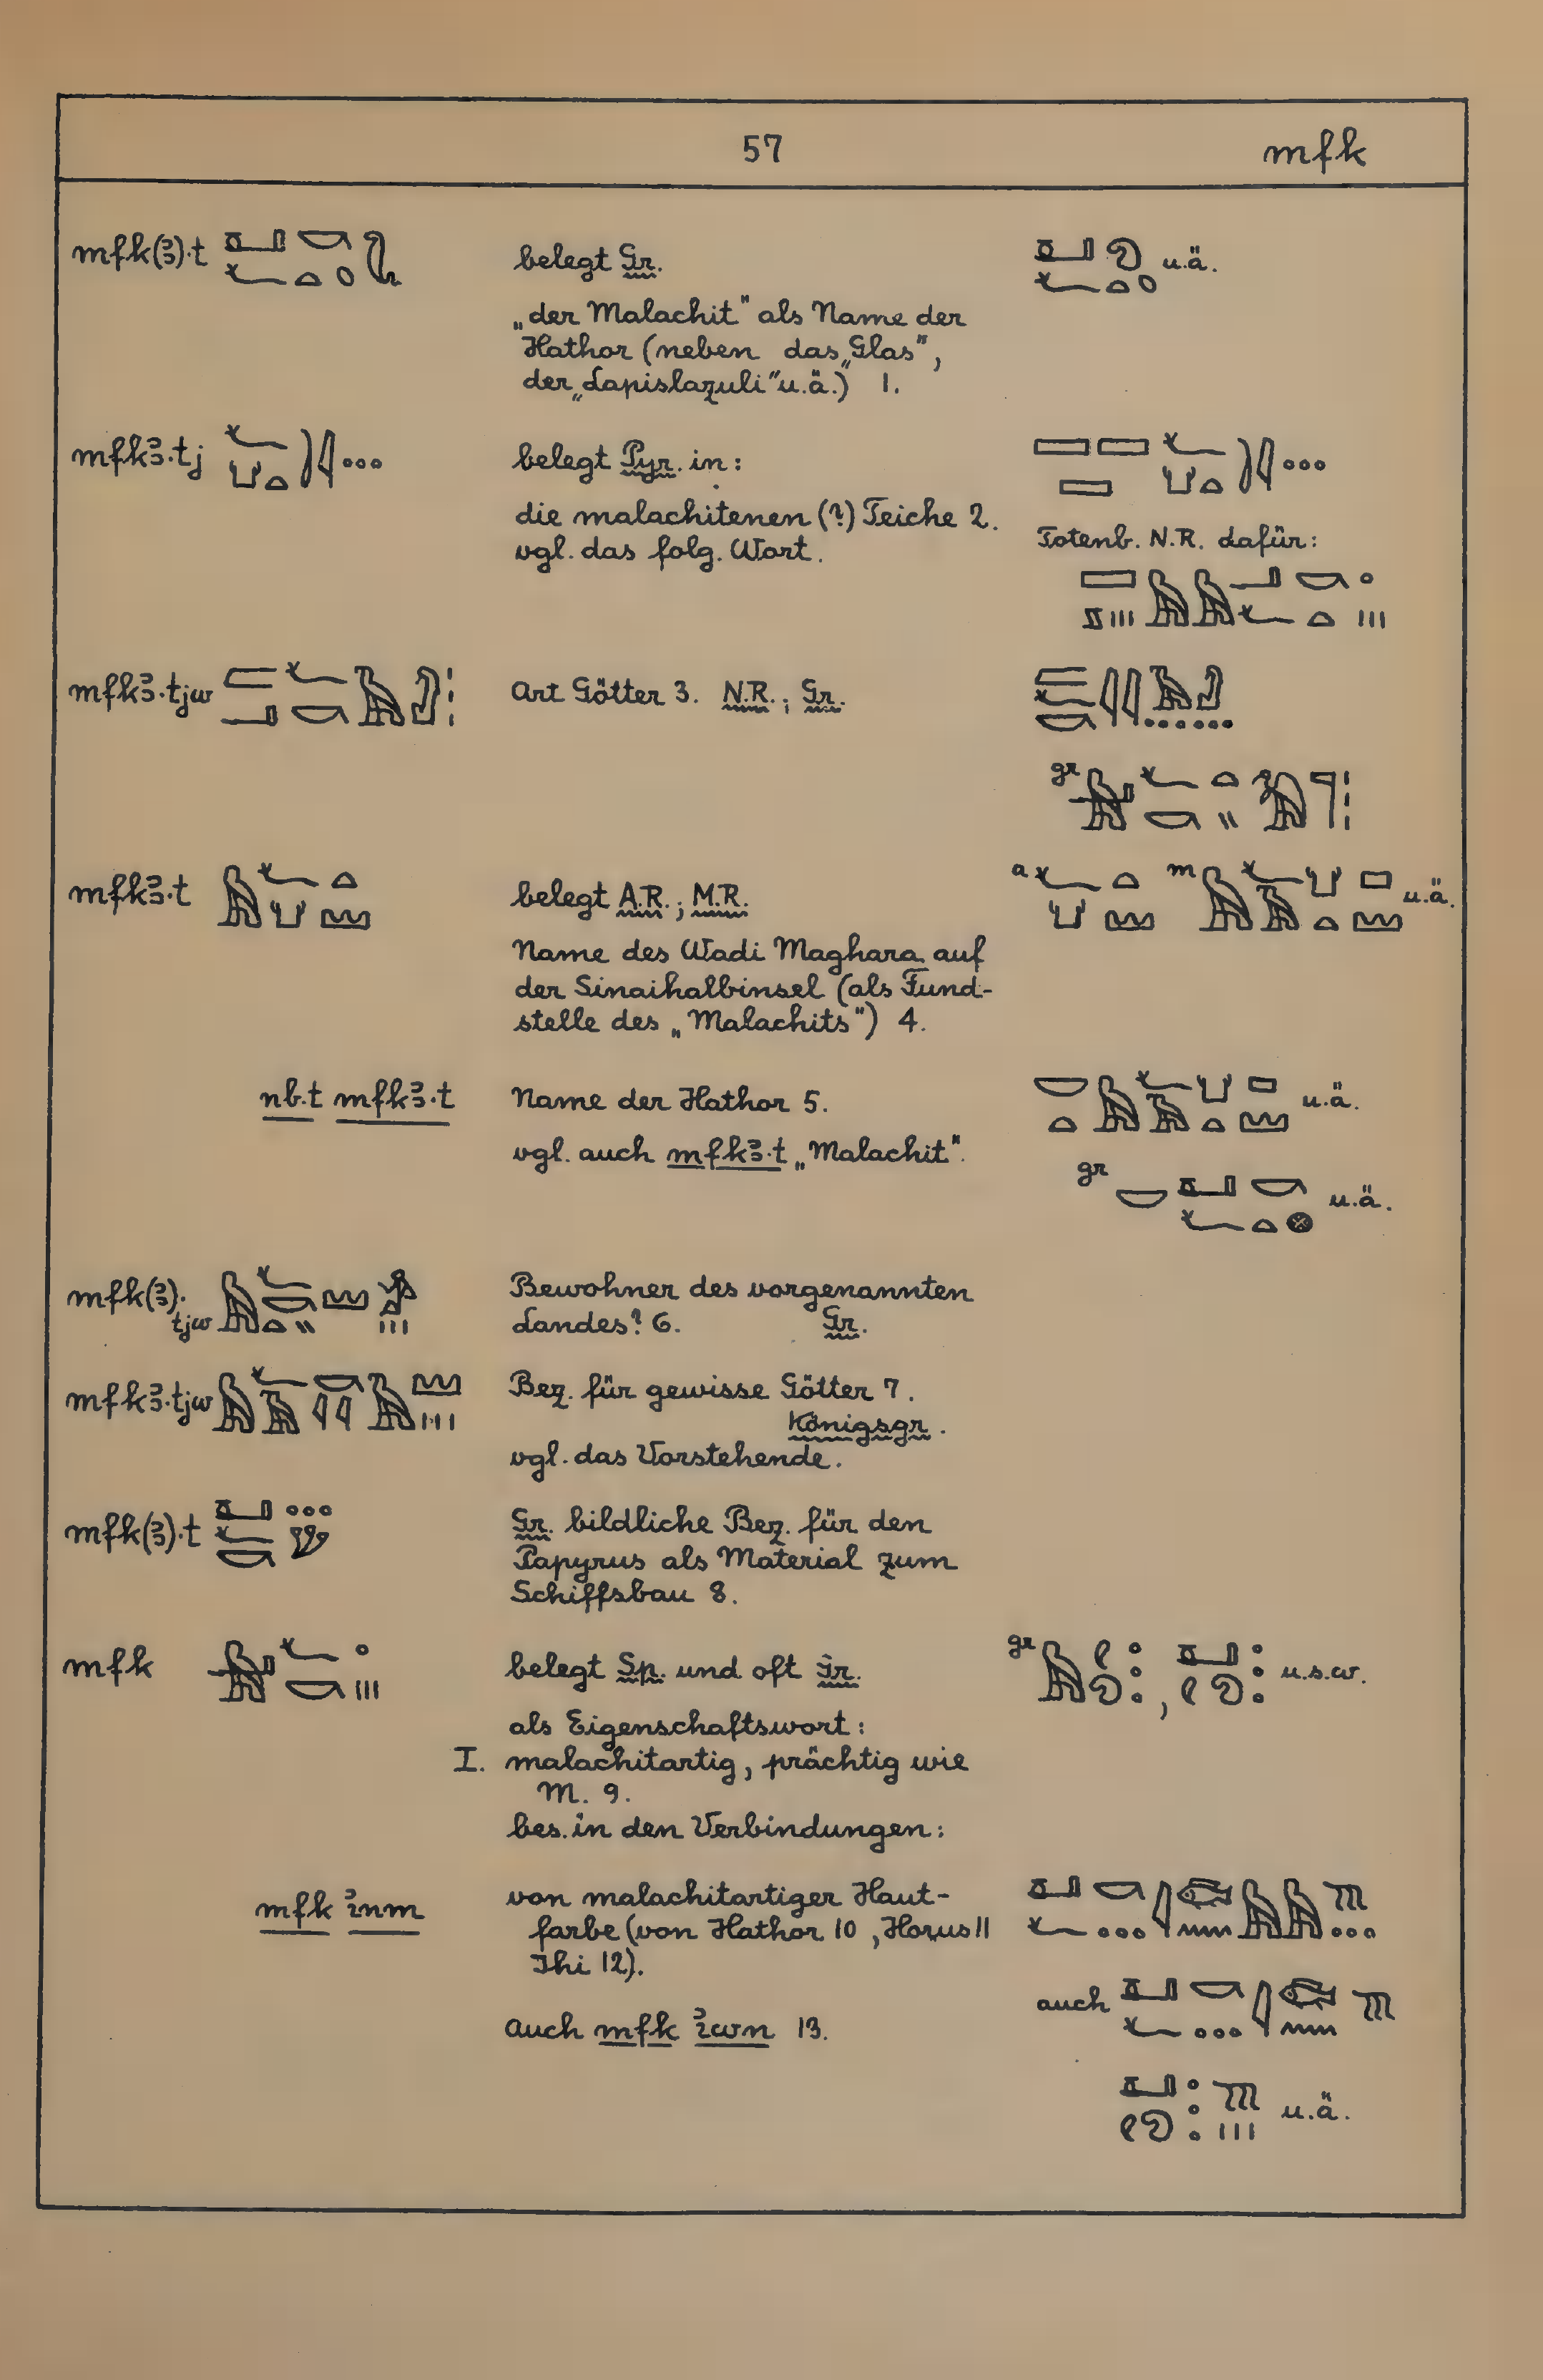 57 mfk
mfk(ꜣ)·t belegt Gr. u.ä.
„der Malachit" als Name der
Hathor (neben das „Glas",
der „Lapislazuli" u.ä.) 1.
mfkꜣ·tj belegt Pyr. in:
die malachitenen (?) Teiche 2.
vgl. das folg. Wort.
Totenb. N.R. dafür:
mfkꜣ·tjw Art Götter 3. N.R.; Gr.
gr
mfkꜣ·t belegt A.R.; M.R. a m u.ä.
Name des Wadi Maghara auf
der Sinaihalbinsel (als Fund-
stelle des „Malachits") 4.
nb·t mfkꜣ·t Name der Hathor 5. u.ä.
vgl. auch mfkꜣ·t „Malachit".
gr u.ä.
mfk(ꜣ)· Bewohner des vorgenannten
tjw Landes? 6. Gr.
mfkꜣ·tjw Bez. für gewisse Götter 7.
Königsgr.
vgl. das Vorstehende.
mfk(ꜣ)·t Gr. bildliche Bez. für den
Papyrus als Material zum
Schiffsbau 8.
mfk belegt Sp. und oft Gr. gr , u.s.w.
als Eigenschaftswort:
I. malachitartig, prächtig wie
M. 9.
bes. in den Verbindungen:
mfk ỉnm von malachitartiger Haut-
farbe (von Hathor 10, Horus 11
Ihi 12).
auch
auch mfk ỉwn 13.
u.ä.